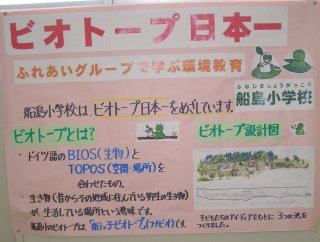 ビオトープ日本一
ふれあいグループで学ぶ環境教育
ふなじましょうがっこう
船島小学校
船島小学校は、ビオトープ日本一をめざしています。
ビオトープとは?
・ドイツ語のBIOS(生物)と
TOPOS(空間・場所)を
合わせたもの。
・生き物(昔からその地域に住んでいる野生の生物)
が、生活している場所という意味です。
船島小のビオトープは、「船っ子ビオトープ(フナビオ)」です。
ビオトープ設計図
子どもたちのアイディアをもとに 3つの池を
つくりました。